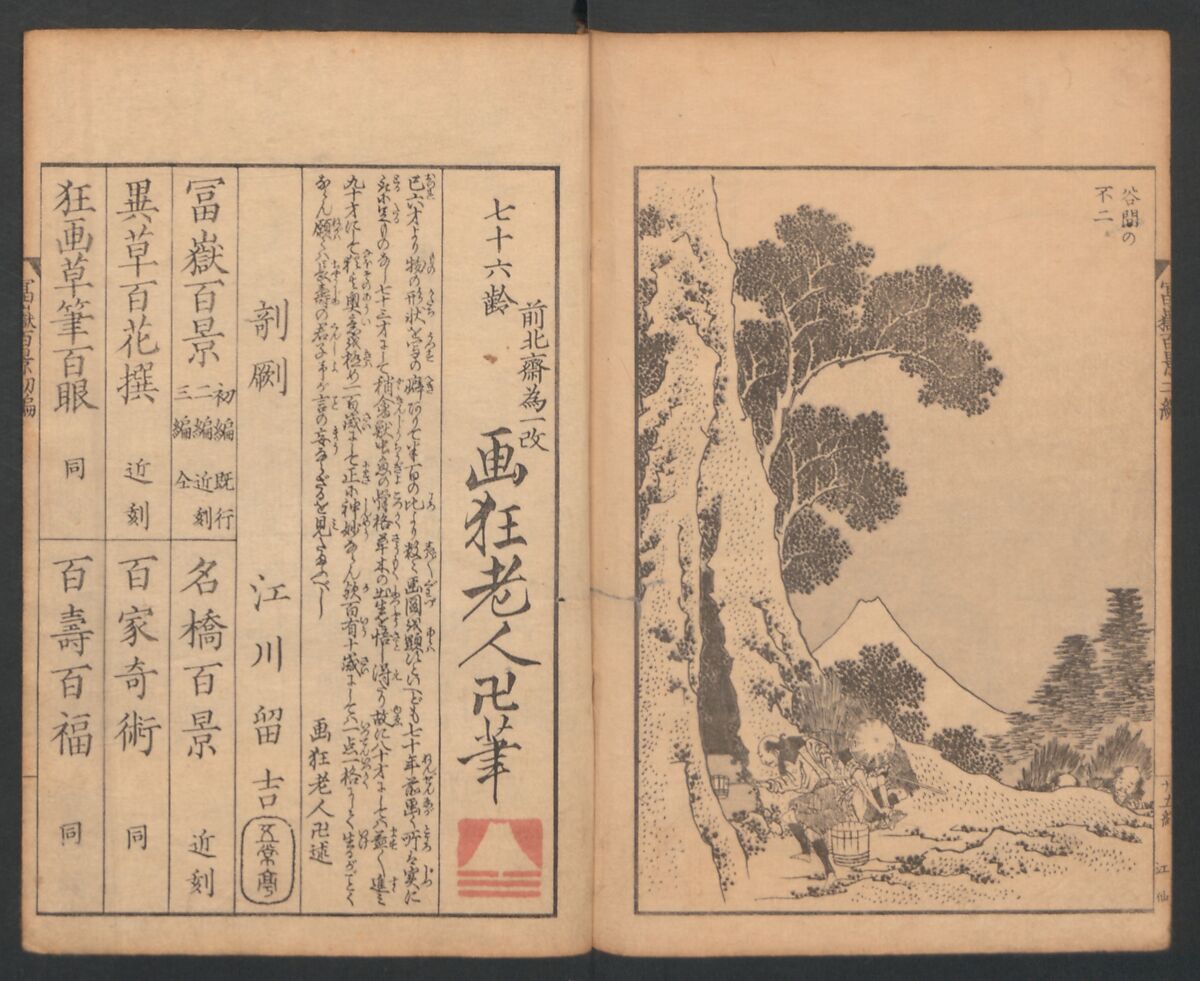 谷間の
不二
江仙
七十六齢
前北齋為一改
画狂老人卍筆
己六才より物の形状を写の癖ありて半百の比より数々画図を顕すといへども七十年前画く所は実に
取に足ものなし七十三才にして稍禽獣虫魚の骨格草木の出生を悟し得たり故に八十才にしては益々進み
九十才にして猶其奥意を極め一百歳にして正に神妙ならん歟百有十歳にしては一点一格にして生るがごとく
ならん願くは長寿の君子予が言の妄ならざるを見たまふべし
画狂老人卍述
剞劂 江川留吉 五常亭
冨嶽百景 初編既行 二編近刻 三編仝
名橋百景 近刻
異草百花撰 近刻
百家奇術 同
狂画草筆百眼 同
百壽百福 同
富嶽百景初編